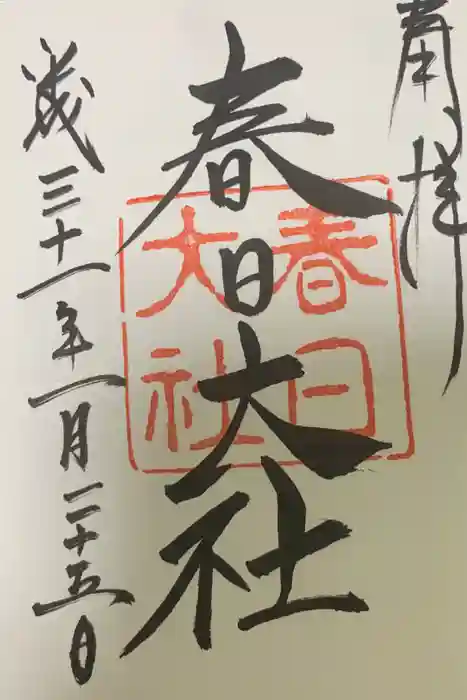 奉拝
春日大社
春日
大社
成三十一年一月二十五日